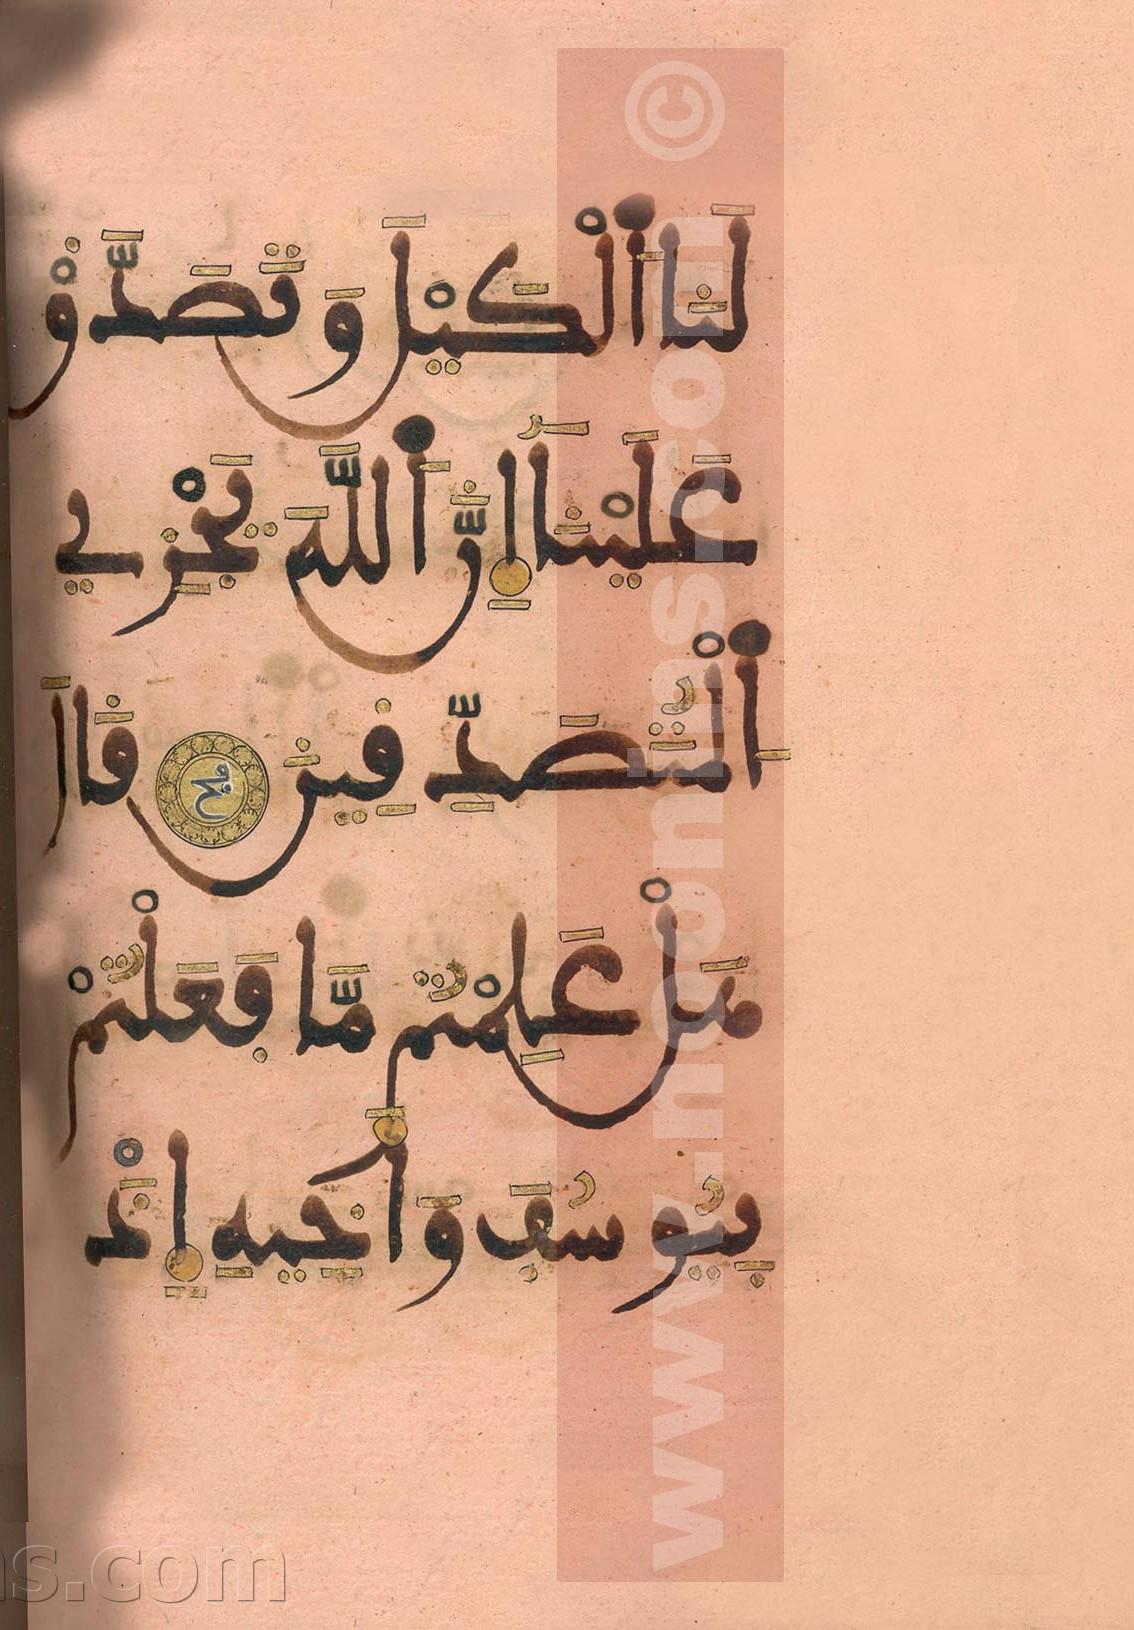 لَنَا اَ۬لْكَيْلَ وَتَصَدَّقْ
عَلَيْنَآ إِنَّ اَ۬للَّهَ يَجْزِي
اِ۬لْمُتَصَدِّقِينَ قَالَ
هَلْ عَلِمْتُم مَّا فَعَلْتُمْ
بِيُوسُفَ وَأَخِيهِ إِذْ
© www.nconinsr.com
ns.com